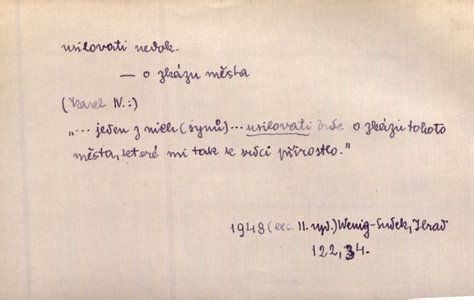 usilovati nedok.
— o zkázu města
(Karel IV.:)
„... jeden z nich (synů)... usilovati bude o zkázu tohoto
města, které mi tak k srdci přirostlo."
1948 (exc. II. vyd.) Wenig-Sudek, Hrad
122, 34.